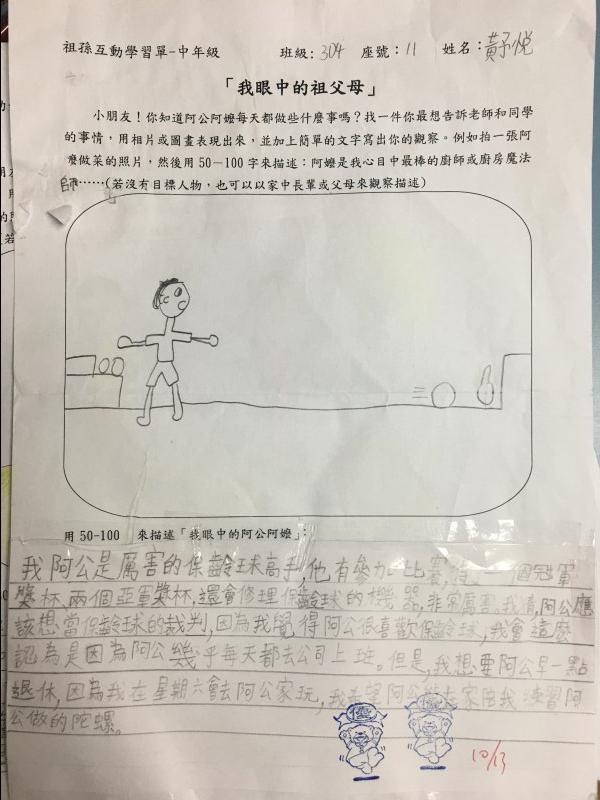 祖孫互動學習單-中年級 班級: 304 座號: 11 姓名: 黃予悦
「我眼中的祖父母」
小朋友！你知道阿公阿嬤每天都做些什麼事嗎？找一件你最想告訴老師和同學
的事情，用相片或圖畫表現出來，並加上簡單的文字寫出你的觀察。例如拍一張阿
麼做菜的照片，然後用50－100字來描述：阿嬤是我心目中最棒的廚師或廚房魔法
師……(若沒有目標人物，也可以以家中長輩或父母來觀察描述)
用 50-100 來描述「我眼中的阿公阿嬤」:
我阿公是厲害的保齡球高手，他有參加比賽，一個冠軍
獎杯、兩個亞軍獎杯，還會修理保齡球的機器，非常厲害。我猜，阿公應
該想當保齡球的裁判，因為我覺得阿公很喜歡保齡球，我會這麼
認為是因為阿公幾乎每天都去公司上班。但是，我想要阿公早一點
退休，因為我在星期六會去阿公家玩，我希望阿公家由我練習阿
公做的陀螺。
優
優
10/13